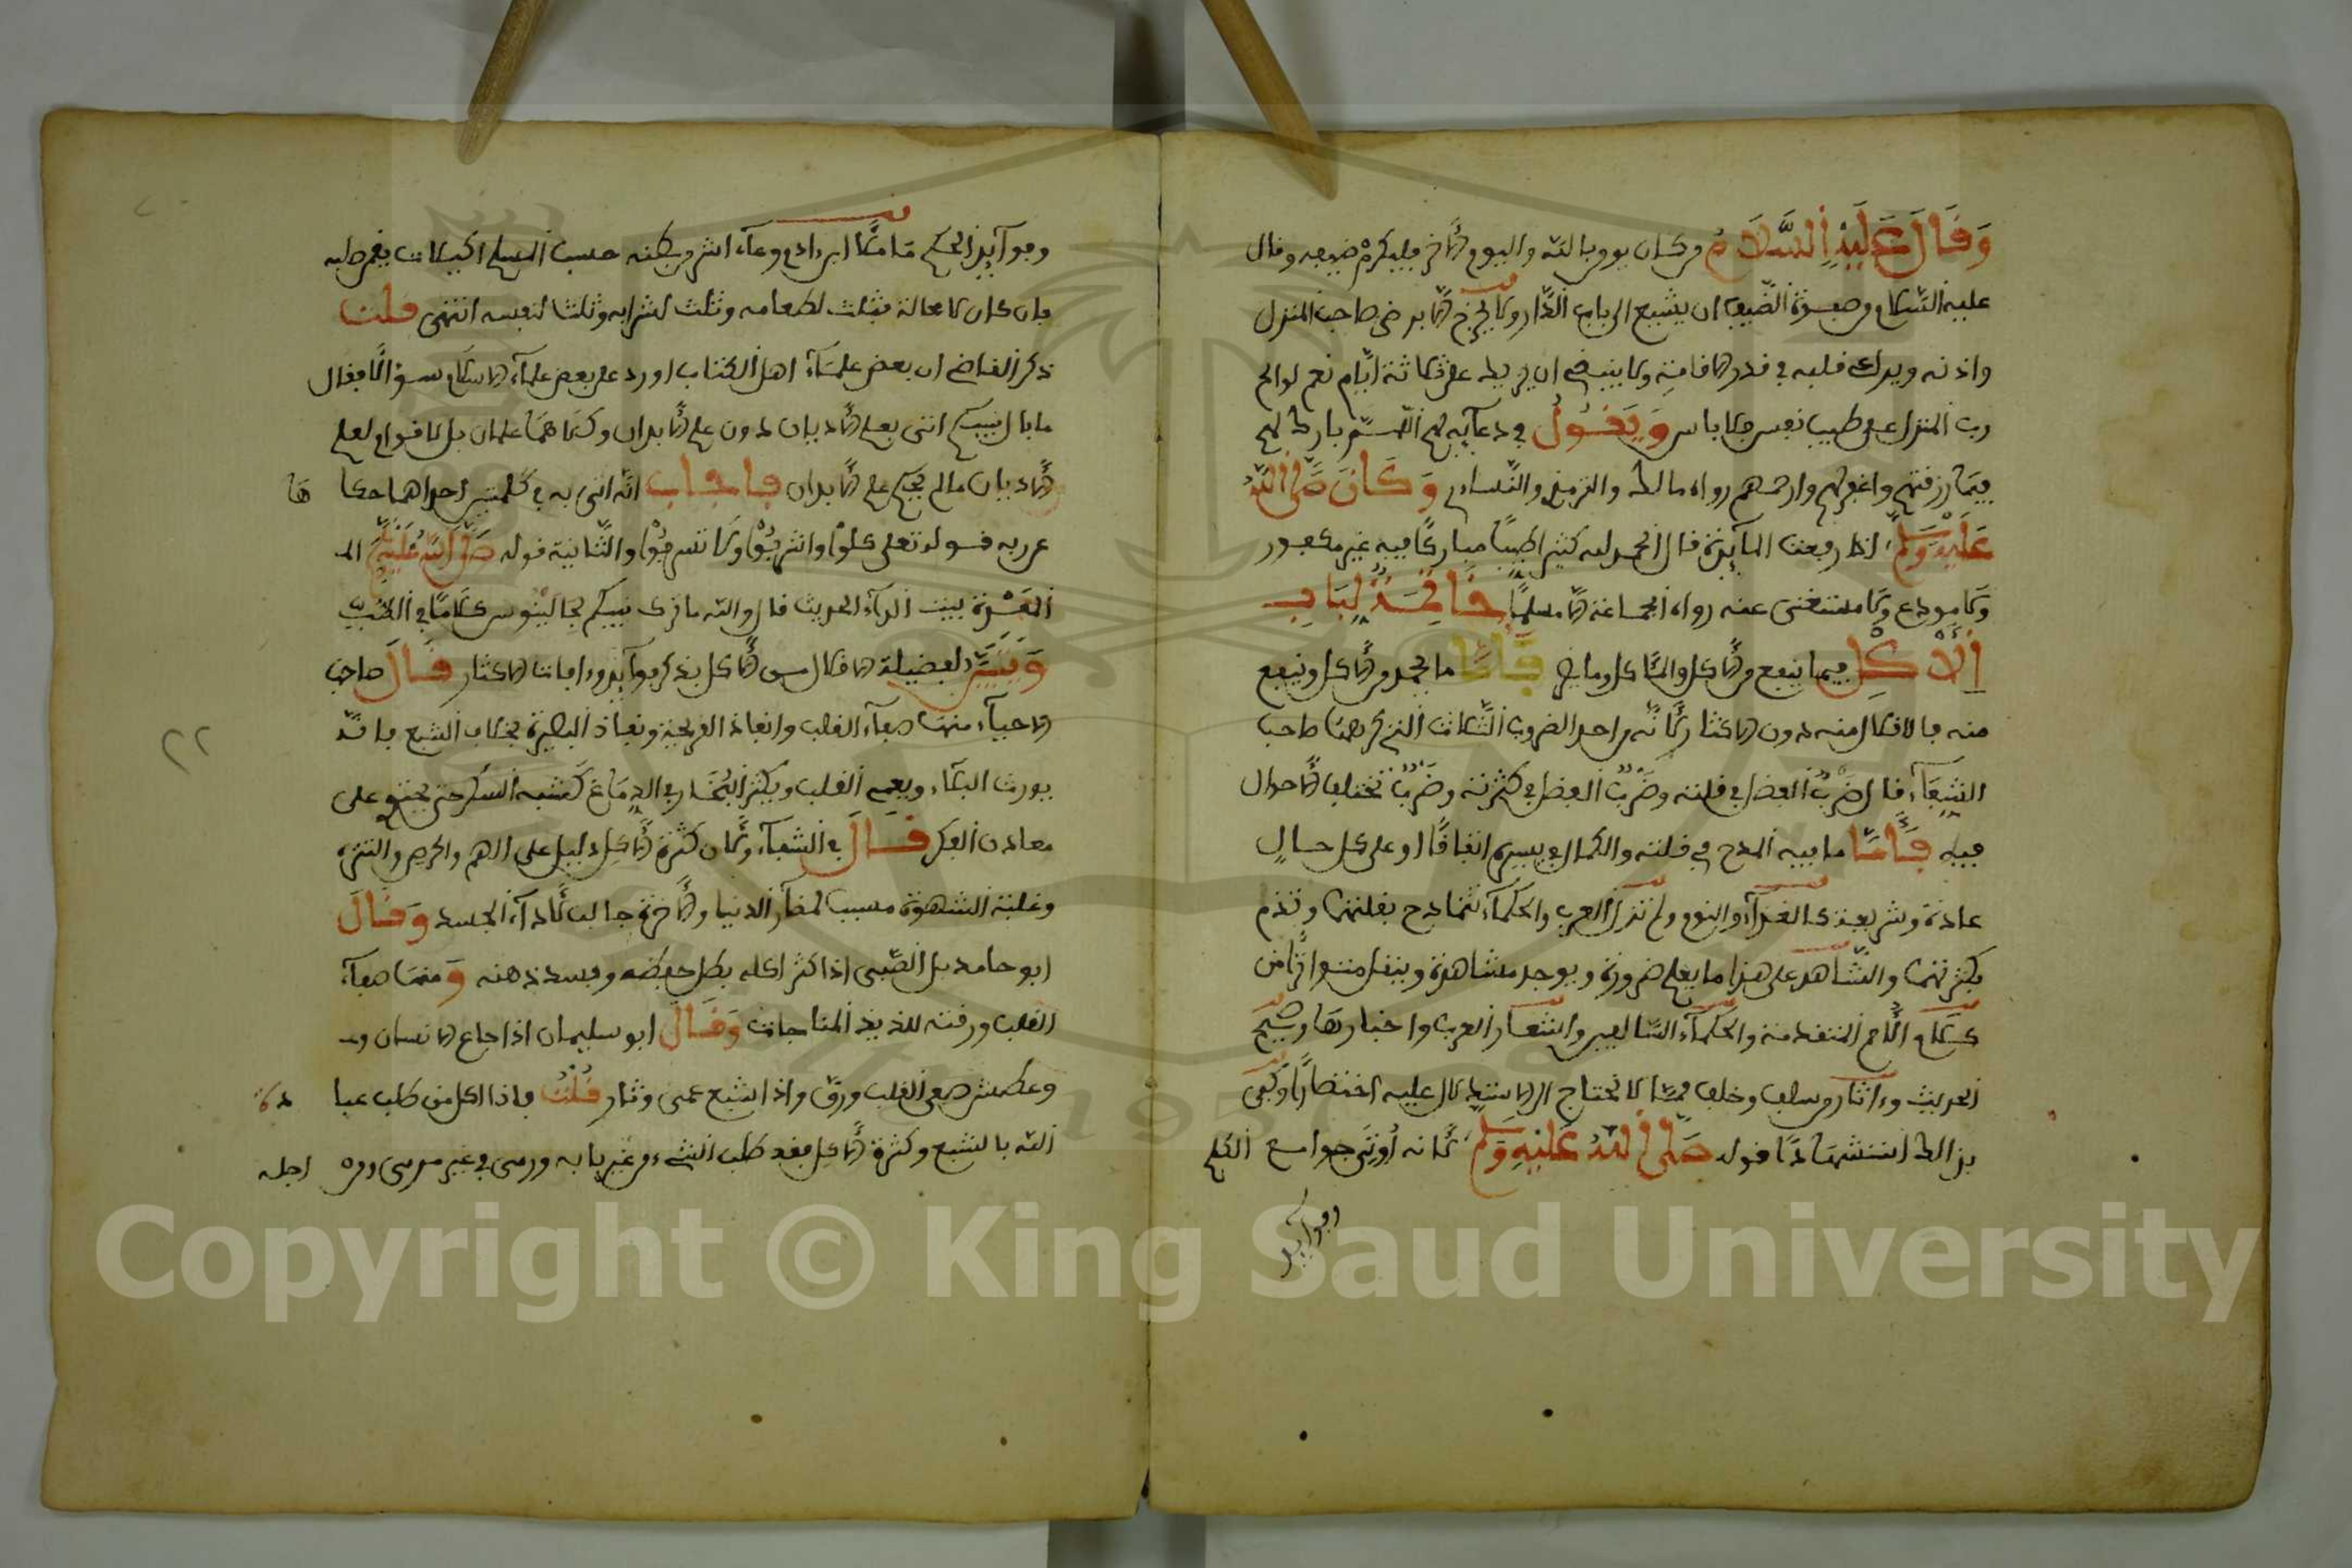 وَقَالَ عَلَيْهِ السَّلَامُ من كان يومن بالله واليوم الاخر فليكرم ضيفه وقال
عليه السلام من سنة الضيف ان يشيع الى باب الدار ولا يخرج الا برضى صاحب المنزل
واذنه ويدرك قلبه في قدر الاقامة ولا ينبغي ان يزيد على ثلاثة ايام نعم لو الح
رب المنزل على طيب نفس فلا باس وَيَقُولُ في دعآيه لهم اللهم بارك لهم
فيما رزقتهم واغفر لهم وارحمهم رواه مالك والترمذي والنساءي وَكَانَ صَلَّى اللهُ
عَلَيْهِ وَسَلَّمَ اذا رفعت المآيدة قال الحمد لله كثيرا طيبا مباركا فيه غير مكفور
ولا مودع ولا مستغنى عنه رواه الجماعة الا مسلما خَاتِمَةٌ لِبَابِ
الأَكْلِ فيما ينفع من الاكل والمأكل وما يضر فَأَمَّا ما يحمد من الاكل وينفع
منه فالاقلال منه دون الاكثار لانه من احد الضروب الثلاث التي ذكرها صاحب
الشِّفَآء قال ضَرْبٌ الفضل في قلته وضَرْبٌ الفضل في كثرته وضَرْبٌ تختلف الاحوال
فيه فَأَمَّا ما فيه المدح في قلته والكمال في يسيره اتفاقا او على كل حال
عادة وشريعة كالغذآء والنوم ولم تزل العرب والحكمآء تتمادح بقلتهما وتذم
بكثرتهما والشاهد على هذا ما يعلم ضرورة ويوجد مشاهدة وينقل متواترا من
كلام الامم المتقدمة والحكمآء السالفين واشعار العرب واخبارها وصحيح
الحديث وءاثار من سلف وخلف مما لا نحتاج الى الاستدلال عليه اختصارا وكفى
بذالك استشهادا قوله صَلَّى اللهُ عَلَيْهِ وَسَلَّمَ لأنه أوتي جوامع الكلم
وفوآيد
وفوآيد الحكم ما ملأ ابن ءادم وعآء اشر من بطنه حسب المسلم اكيلات يقمن صلبه
فان كان لا محالة فثلث لطعامه وثلث لشرابه وثلث لنفسه انتهى قلت
ذكر القاضي ان بعض علمآء اهل الكتاب اورد على بعض علمآء الاسلام سؤالا فقال
ما بال نبيكم اتى بعلم الاديان دون علم الابدان وكلاهما علمان بل لا قوام لعلم
الاديان ما لم يحكم علم الابدان فاجاب انه اتى به في كلمتين احداهما حكا ها
عن ربه قوله تعلى كلوا واشربوا ولا تسرفوا والثانية قوله صَلَّى اللهُ عَلَيْهِ وَسَلَّمَ الم
المعدة بيت الدآء الحديث قال والله ما ترك نبيكم لجالينوس كلاما في الطب
وَيُبَيِّنُ لفضيلة الاقلال من الاكل بذكر فوآيده وءافات الاكثار قَالَ صاحب
الاحيآء منها صفآء القلب وانفاذ القريحة ونفاذ البصيرة بخلاف الشبع فانه
يورث البلاء ويعمي القلب ويكثر البُخَار في الدماغ كشبه السكر حتى يحتوي على
معادن الفكر قَالَ في الشفآء ولان كثرة الاكل دليل على النهم والحرص والشره
وغلبة الشهوة مسبب لمضآر الدنيا والاخرة جالب لادوآء الجسد وَقَالَ
ابو حامد بل الصبي اذا كثر اكله بطل حفظه وفسد ذهنه وَمنها صفآء
القلب ورقته للذيذ المناجات وَقَالَ ابو سليمان اذا جاع الانسان و
وعطش صفى القلب ورق واذا شبع عمى وثار قُلْتُ فاذا اكل من طلب عبا دة
الله بالشبع وكثرة الاكل فقد طلب الشيء من غير بابه ورمى في غير مرمى ومن اجله
٢٢
Copyright © King Saud University
1957